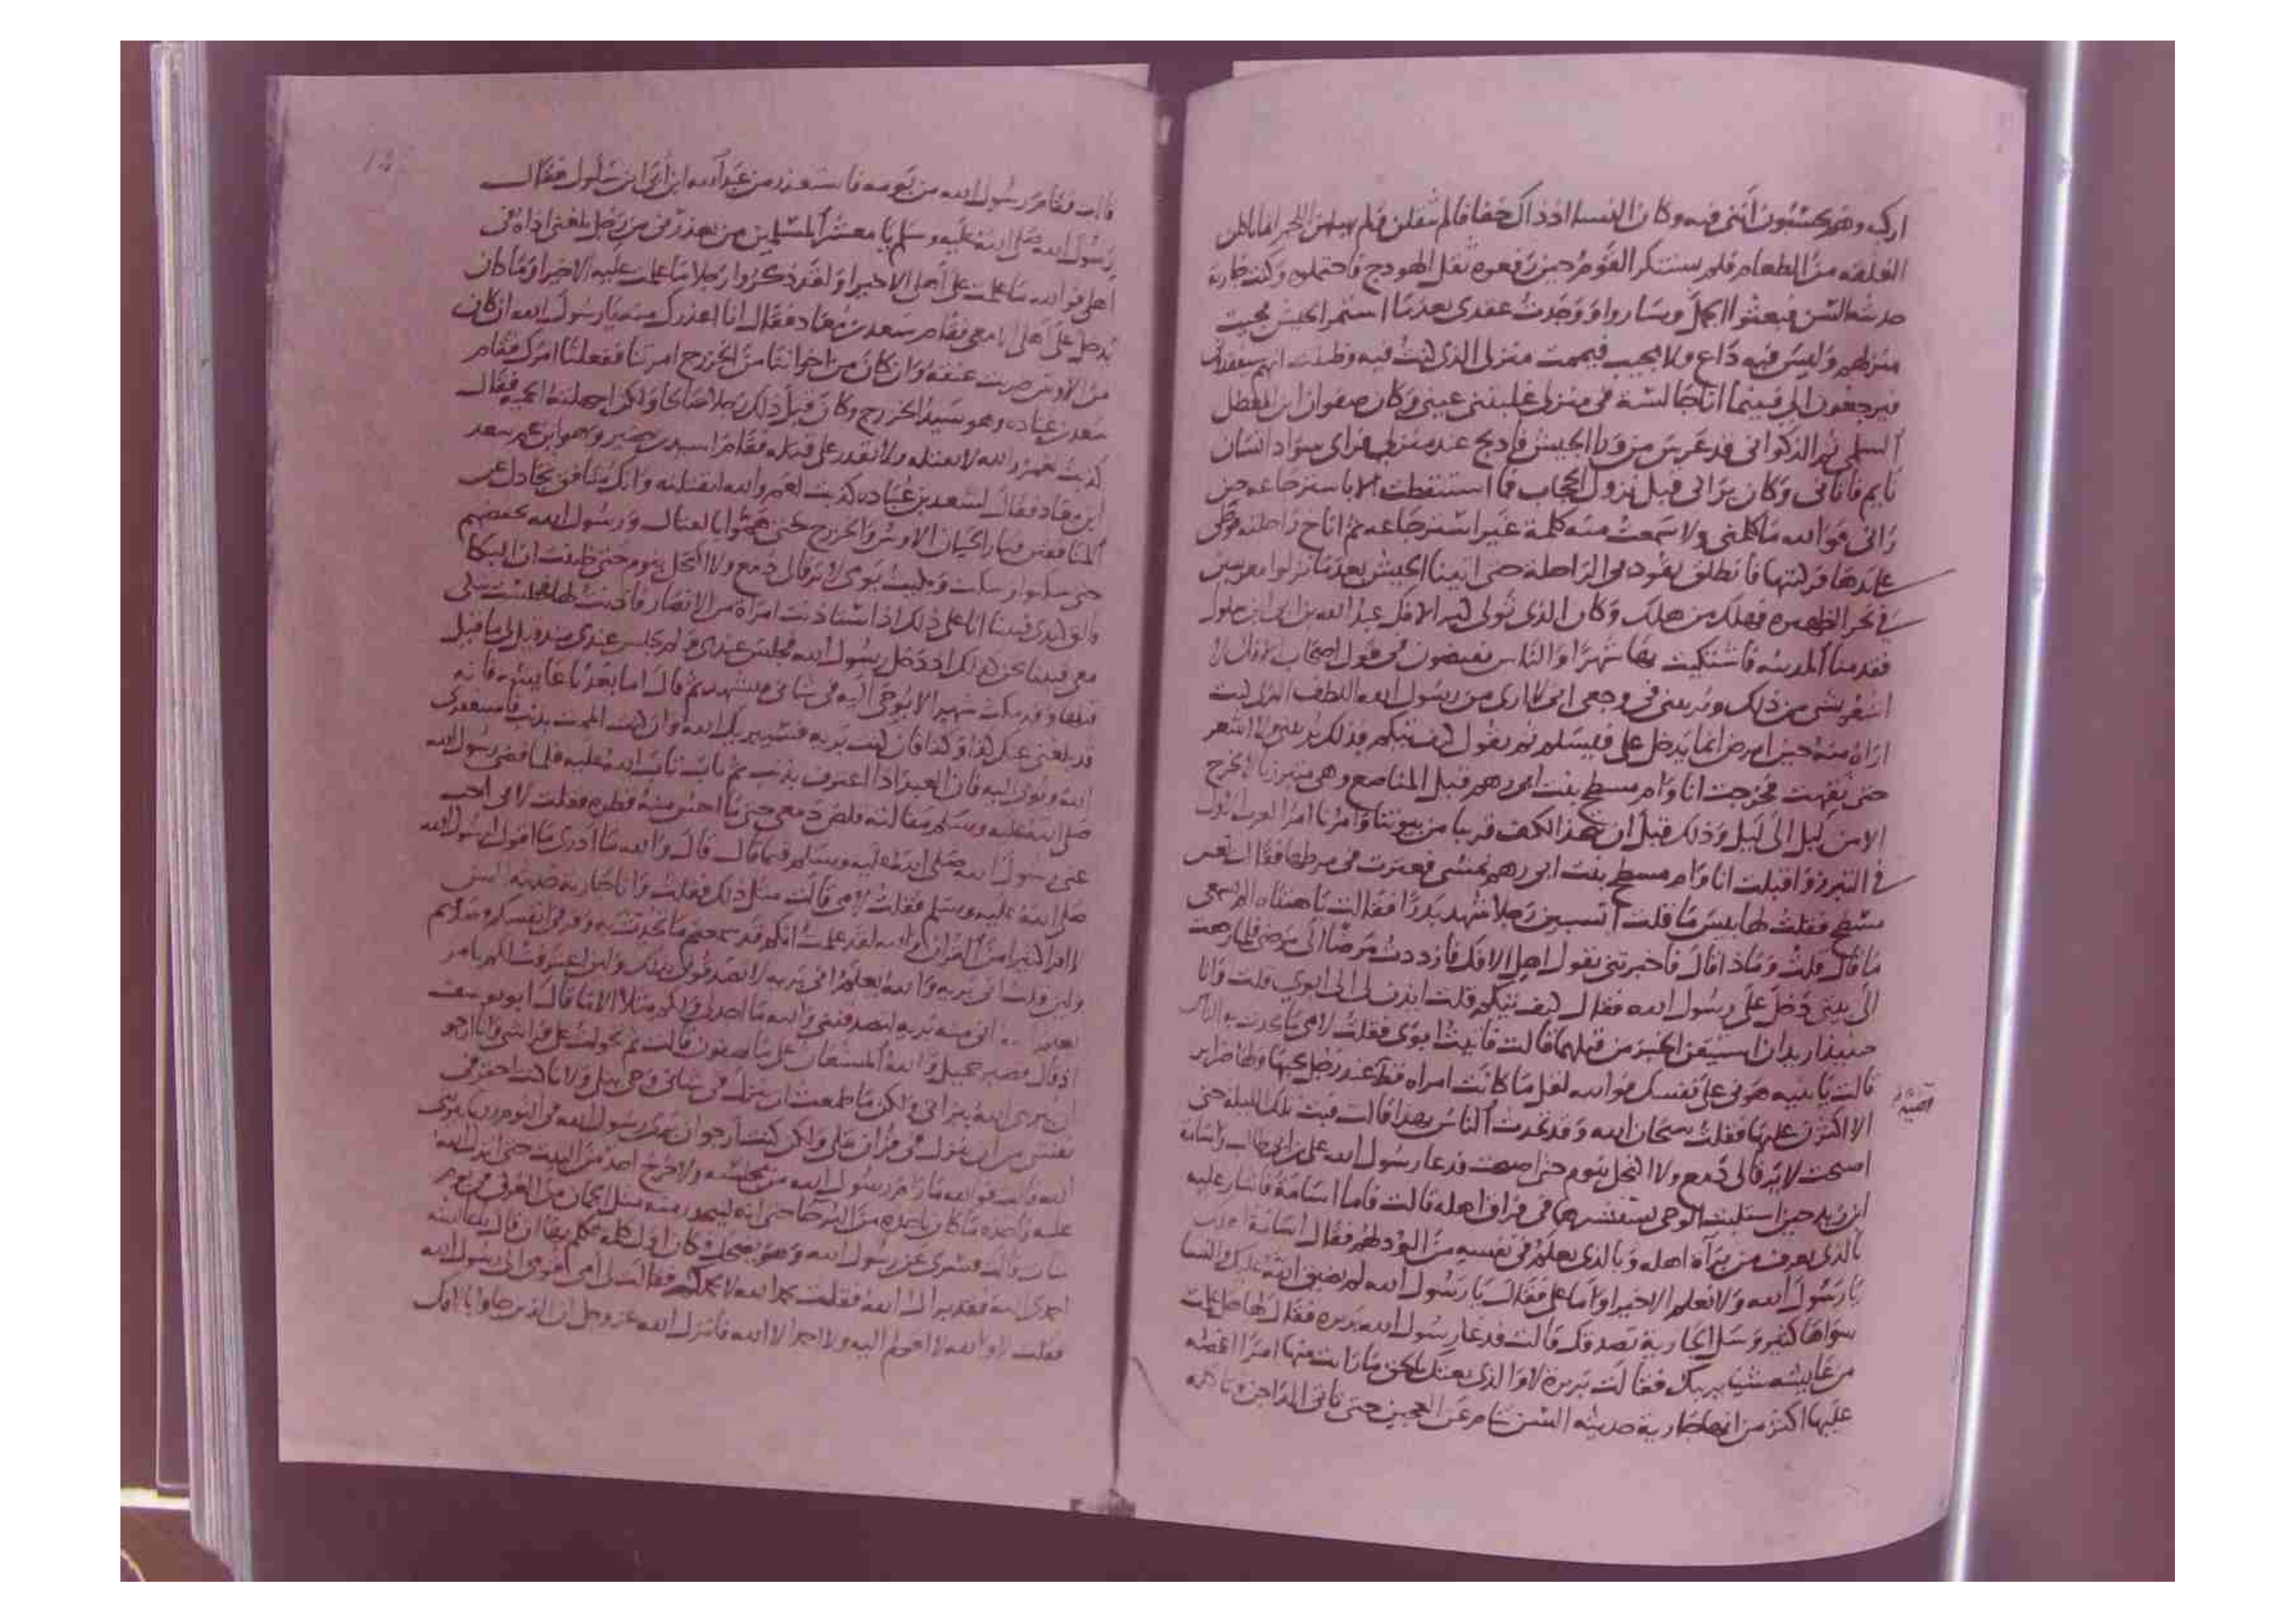 اركب وهم يحسبون انني فيه وكان النسا اذ ذاك خفافا لم يثقلن ولم يهبلهن اللحم انما ياكلن
العلقه من الطعام فلم يستنكر القوم حين رفعوه ثقل الهودج فاحتملوه وكنت جارية
حديثه السن فبعثوا الجمل وساروا ووجدت عقدي بعدما استمر الجيش فجيت
منزلهم وليس فيه داع ولا مجيب فيممت منزلي الذي كنت فيه وظننت انهم سيفقدوني
فيرجعون الي فبينما انا جالسة في منزلي غلبتني عيني وكان صفوان ابن المعطل
السلمي ثم الذكواني قد عرس من ورا الجيش فادلج عند منزلي فراى سواد انسان
نايم فاتاني وكان يراني قبل نزول الحجاب فما استيقظت الا باسترجاعه حين
راني فوالله ما كلمني ولا سمعت منه كلمة غير استرجاعه ثم اناخ راحلته فوطى
على يدها فركبتها فانطلق يقود بي الراحلة حتى اتينا الجيش بعدما نزلوا معرسين
في نحر الظهيره فهلك من هلك وكان الذي تولى كبر الافك عبد الله بن ابي ابن سلول
فقدمنا المدينه فاشتكيت بها شهرا والناس يفيضون في قول اصحاب الافك لا
اشعر بشي من ذلك ويريبني في وجعي اني لا ارى من رسول الله اللطف الذي كنت
اراه منه حين امرض انما يدخل علي فيسلم ثم يقول كيف تيكم فذلك يريبني ولا اشعر
حتى نقهت فخرجت انا وام مسطح بنت ابي رهم قبل المناصع وهي متبرزنا لا نخرج
الا من ليل الى ليل وذلك قبل ان نتخذ الكنف قريبا من بيوتنا وامرنا امر العرب الاول
في التبرز واقبلت انا وام مسطح بنت ابي رهم نمشي فعثرت في مرطها فقالت تعس
مسطح فقلت لها بيس ما قلت اتسبين رجلا شهد بدرا فقالت يا هنتاه الم تسمعي
ما قال قلت وماذا قال فاخبرتني بقول اهل الافك فازددت مرضا الى مرضي فلما رجعت
الى بيتي دخل علي رسول الله فقال كيف تيكم قلت ايذن لي الى ابوي قلت وانا
حينيذ اريد ان استيقن الخبر من قبلهما قالت فاتيت ابوي فقلت لامي ما يتحدث به الناس
قالت يا بنيه هوني على نفسك فوالله لقل ما كانت امراه قط عند رجل يحبها ولها ضراير
الا اكثرن عليها فقلت سبحان الله وقد تحدث الناس بهذا قالت فبت تلك الليله حتى
اصبحت لا يرقا لي دمع ولا اكتحل بنوم حتى اصبحت فدعا رسول الله علي بن ابي طالب واسامة
ابن زيد حين استلبث الوحي يستشيرهما في فراق اهله قالت فاما اسامة فاشار عليه
بالذي يعرف من براة اهله وبالذي يعلم في نفسه من الود لهم فقال اسامة اهلك
يا رسول الله ولا نعلم الا خيرا واما علي فقال يا رسول الله لم يضيق الله عليك والنسا
سواها كثير وسل الجارية تصدقك قالت فدعا رسول الله بريره فقال لها هل علمت
من عايشه شيا يريبك فقالت بريرة لا والذي بعثك بالحق ما رايت منها امرا اغمصه
عليها اكثر من انها جارية حديثه السن تنام عن العجين حتى تاتي الداجن وتاكله
قالت فقام رسول الله من يومه فاستعذر من عبد الله ابن ابي ابن سلول فقال
رسول الله صلى الله عليه وسلم يا معشر المسلمين من يعذرني من رجل بلغني اذاه في
اهلي فوالله ما علمت على اهلي الا خيرا ولقد ذكروا رجلا ما علمت عليه الا خيرا وما كان
يدخل على اهلي الا معي فقام سعد بن معاد فقال انا اعذرك منه يا رسول الله ان كان
من الاوس ضربت عنقه وان كان من اخواننا من الخزرج امرتنا ففعلنا امرك فقام
سعد بن عباده وهو سيد الخزرج وكان قبل ذلك رجلا صالحا ولكن اجهلته الحميه فقال
كذبت لعمر الله لا تقتله ولا تقدر على قتله فقام اسيد بن حضير وهو ابن عم سعد
ابن معاد فقال لسعد بن عباده كذبت لعمر والله لنقتلنه وانك منافق تجادل عن
المنافقين فثار الحيان الاوس والخزرج حتى هموا بالقتال ورسول الله يخفضهم
حتى سكتوا وسكت وبكيت يومي لا يرقا لي دمع ولا اكتحل بنوم حتى ظننت ان البكا
فالق كبدي فبينا انا على ذلك اذ استاذنت امراة من الانصار فاذنت لها فجلست تبكي
معي فبينا نحن كذلك اذ دخل رسول الله فجلس عندي ولم يجلس عندي منذ قيل لي ما قيل
قبلها وقد مكث شهرا لا يوحى اليه في شاني فتشهد ثم قال اما بعد يا عايشه فانه
قد بلغني عنك كذا وكذا فان كنت بريه فسيبريك الله وان كنت الممت بذنب فاستغفري
الله وتوبي اليه فان العبد اذا اعترف بذنب ثم تاب تاب الله عليه فلما قضى رسول الله
صلى الله عليه وسلم مقالته قلص دمعي حتى ما احس منه قطره فقلت لابي اجب
عني رسول الله صلى الله عليه وسلم فيما قال قال والله ما ادري ما اقول لرسول الله
صلى الله عليه وسلم فقلت لامي قالت مثل ذلك فقلت وانا جارية حديثه السن
لا اقرا كثيرا من القران والله لقد علمت انكم قد سمعتم ما تحدث به وقر في انفسكم وصدقتم
ولين قلت اني بريه والله يعلم اني بريه لا تصدقوني بذلك ولين اعترفت لكم بامر
يعلم الله اني منه بريه لتصدقنني والله ما اجد لي ولكم مثلا الا ما قال ابو يوسف
اذ قال فصبر جميل والله المستعان على ما تصفون قالت ثم تحولت على فراشي وانا ارجو
ان يبري الله براتي ولكن ما طمعت ان ينزل في شاني وحي يتلى ولانا كنت احقر في
نفسي من ان يقول في قران يتلى ولكن كنت ارجو ان يرى رسول الله في النوم رويا يبريني
الله قالت فوالله ما رام رسول الله من مجلسه ولا خرج احد من البيت حتى انزل الله
عليه واخذه ما كان ياخذه من البرحا حتى انه ليتحدر منه مثل الجمان من العرق في يوم
شات قالت فسري عن رسول الله وهو يضحك وكان اول كلمه تكلم بها ان قال يا عايشه
احمدي الله فقد براك الله فقلت بحمد الله لا بحمدكم فقالت لي امي قومي الى رسول الله
فقلت لا والله لا اقوم اليه ولا احمد الا الله فانزل الله عز وجل ان الذين جاوا بالافك